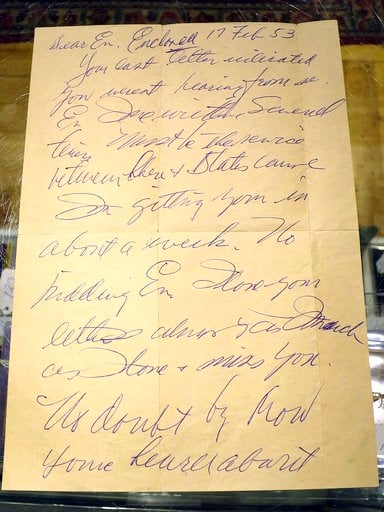 Dear En. Enclosed 17 Feb 53
Your last letter indicated
you werent hearing from me.
En I've written several
times Must be the service
between here & States cause
I'm gitting yours in
about a week. No
kidding En I love your
letters almost as much
as I love & miss you.
No doubt by now
youve heard about